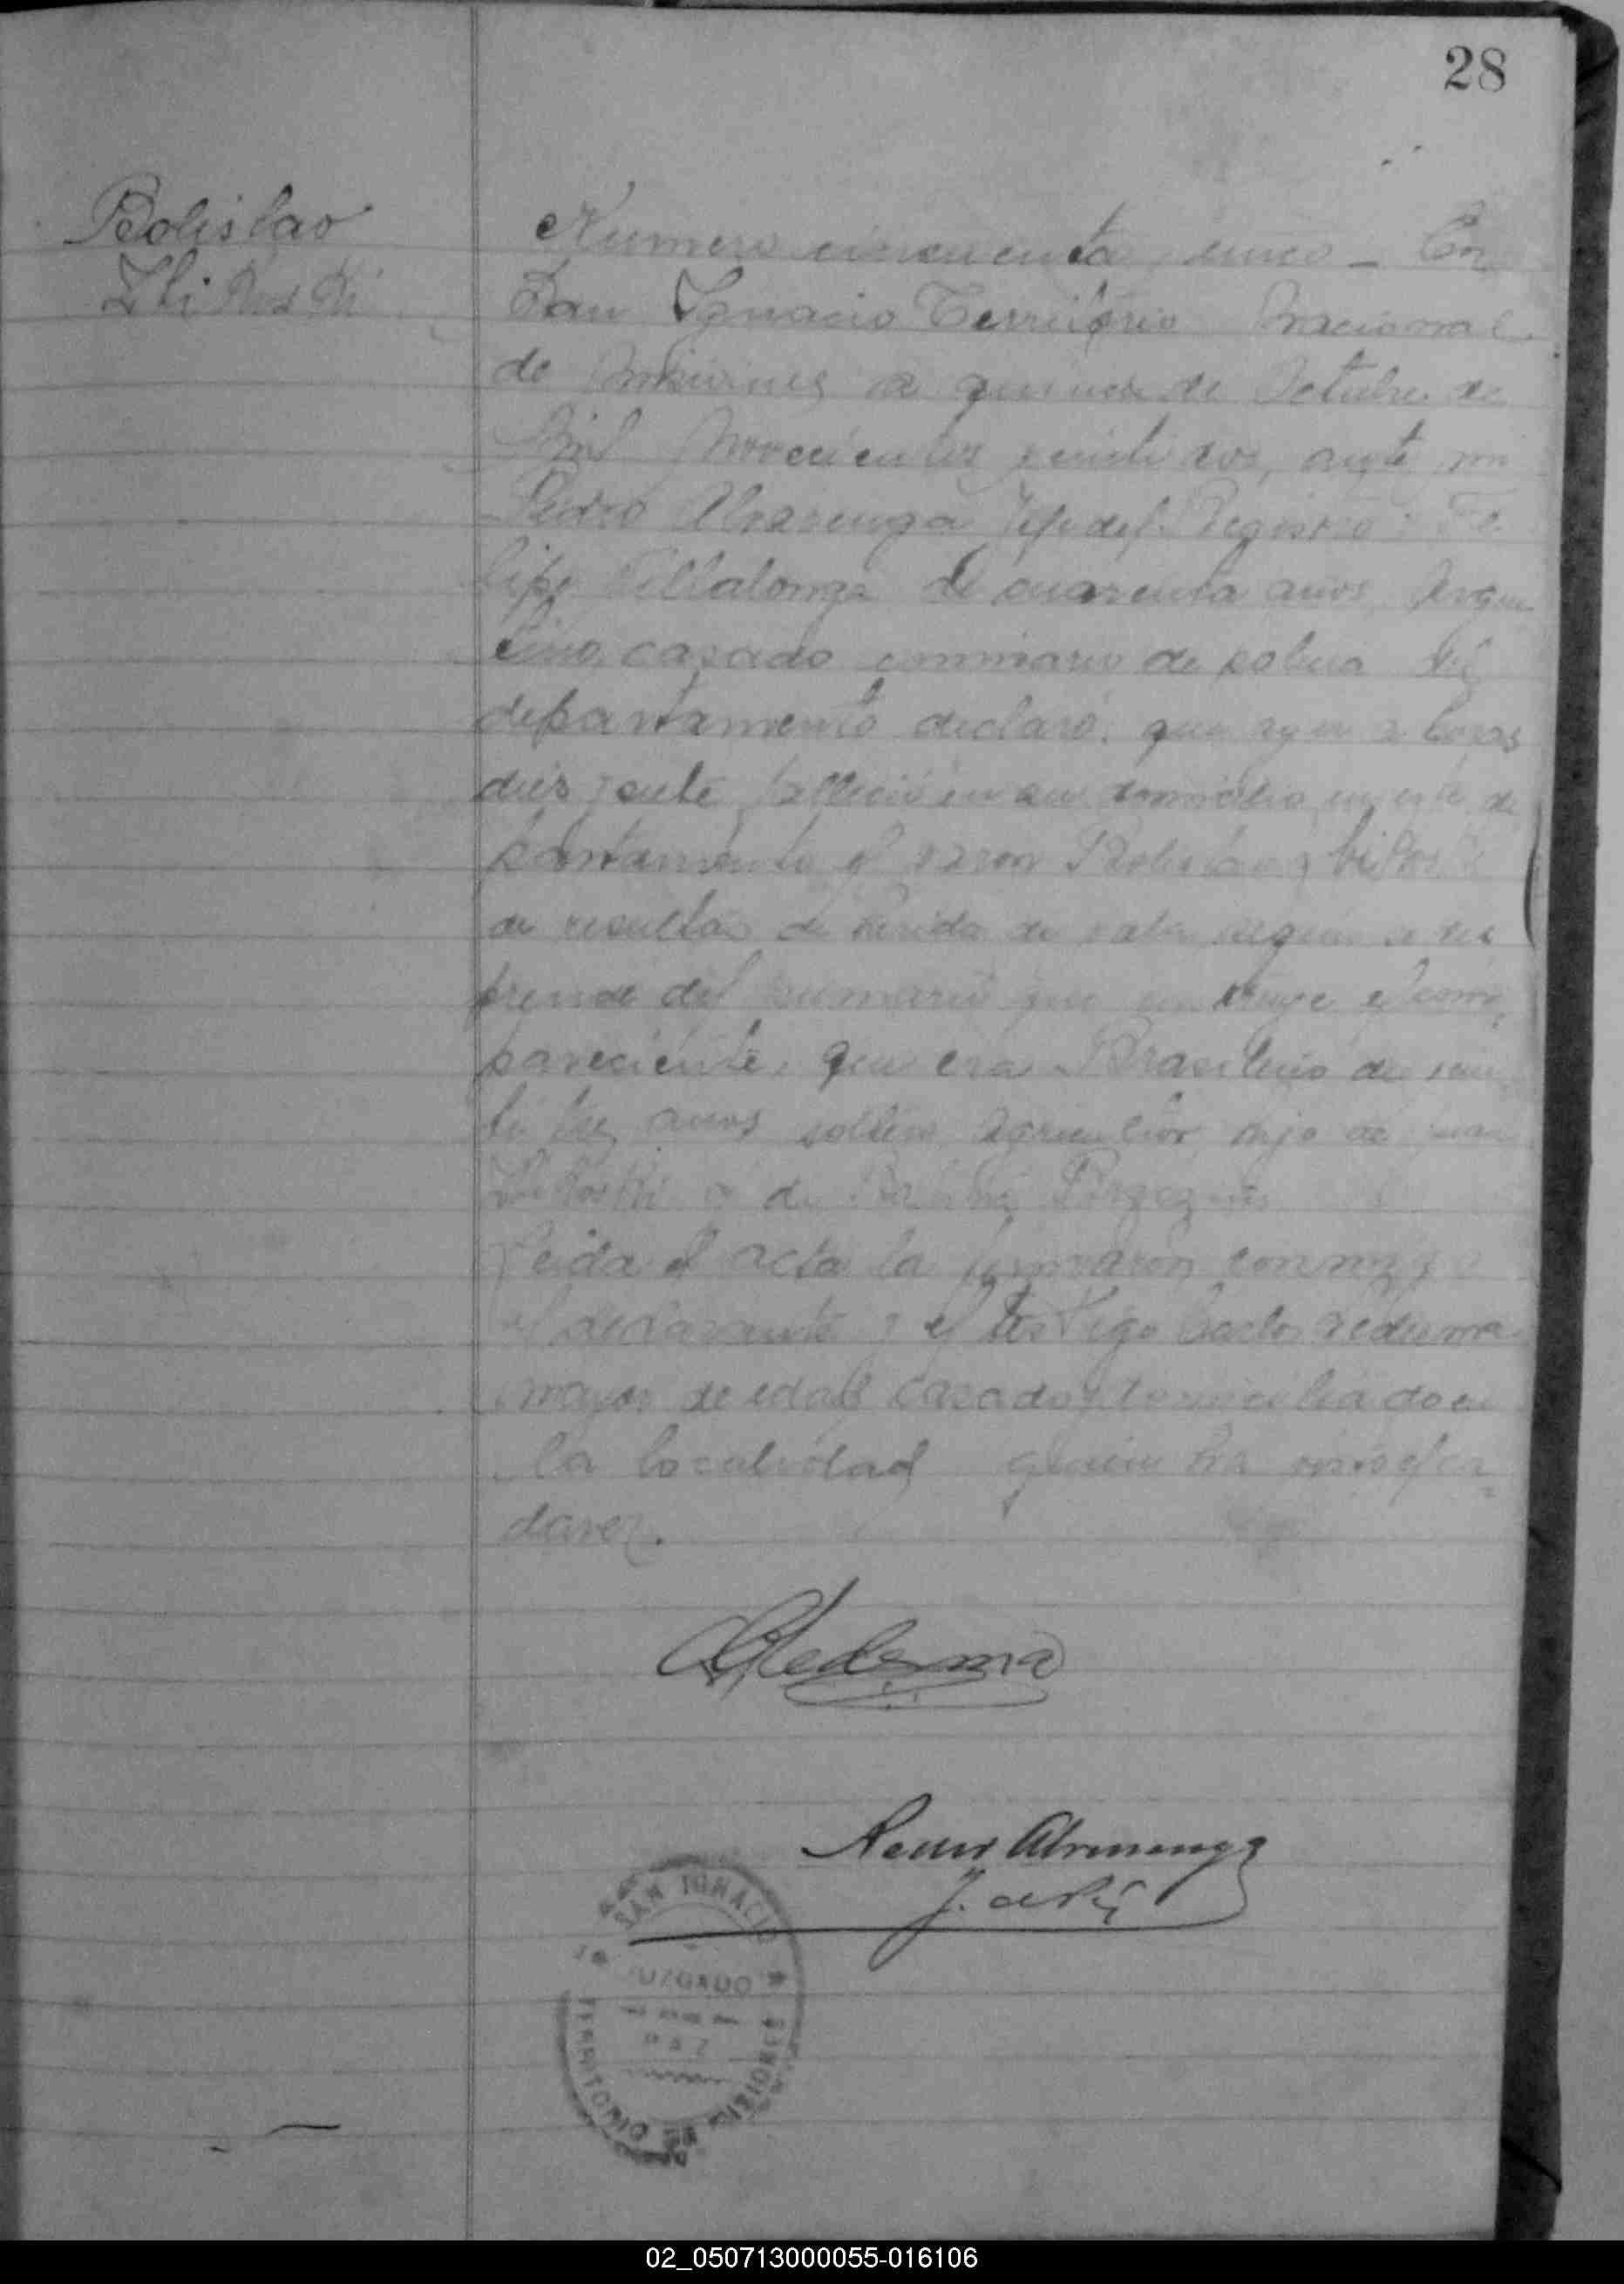 28
Bolislao
Numero cincuenta cinco - En
San Ignacio Territorio Nacional
de Misiones a quince de Octubre de
Mil Novecientos veinti dos, ante mi
Pedro Alvarenga Jefe del Registro: Fe
lipe Villalonga de cuarenta años, Argen
tino, casado comisario de policia del
departamento declaró: que ayer a horas
diez siete falleció en su domicilio en este de
partamento el varon
de resultas de herida de bala segun se des
prende del sumario que instruye el com
pareciente, que era Brasilero de vein
ti tres años soltero agricultor hijo de Juan
o de
Leida el acta la firmaron conmigo
el declarante y el testigo Carlos Ledesma
mayor de edad casado domiciliado en
la localidad quien ha visto el ca
daver.
Ledesma
Pedro Alvarenga
J. de Paz
SAN IGNACIO
JUZGADO
PAZ
TERRITORIO DE MISIONES
02_050713000055-016106